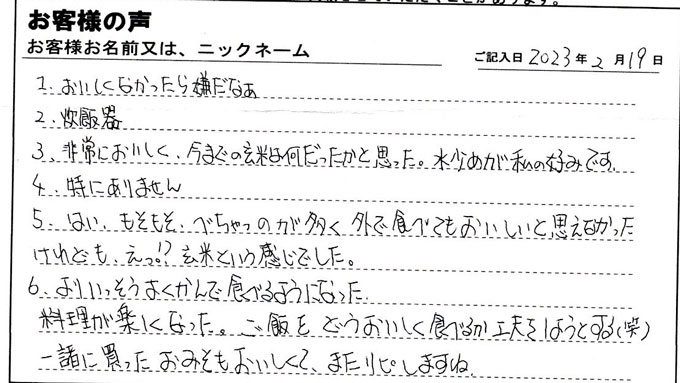 お客様の声
お客様お名前又は、ニックネーム
ご記入日 2023年 2月19日
1. おいしくなかったら嫌だなぁ
2. 炊飯器
3. 非常においしく、今までの玄米は何だったかと思った。水少なめが私の好みです。
4. 特にありません
5. はい、もそもそ、べちゃっのが多く外で食べてもおいしいと思えなかった
けれども、えっ!? 玄米という感じでした。
6. よりいっそうよくかんで食べるようになった。
料理が楽しくなった。ご飯をどうおいしく食べるか工夫をしようとする(笑)
一諸に買ったおみそもおいしくて、またリピしますね